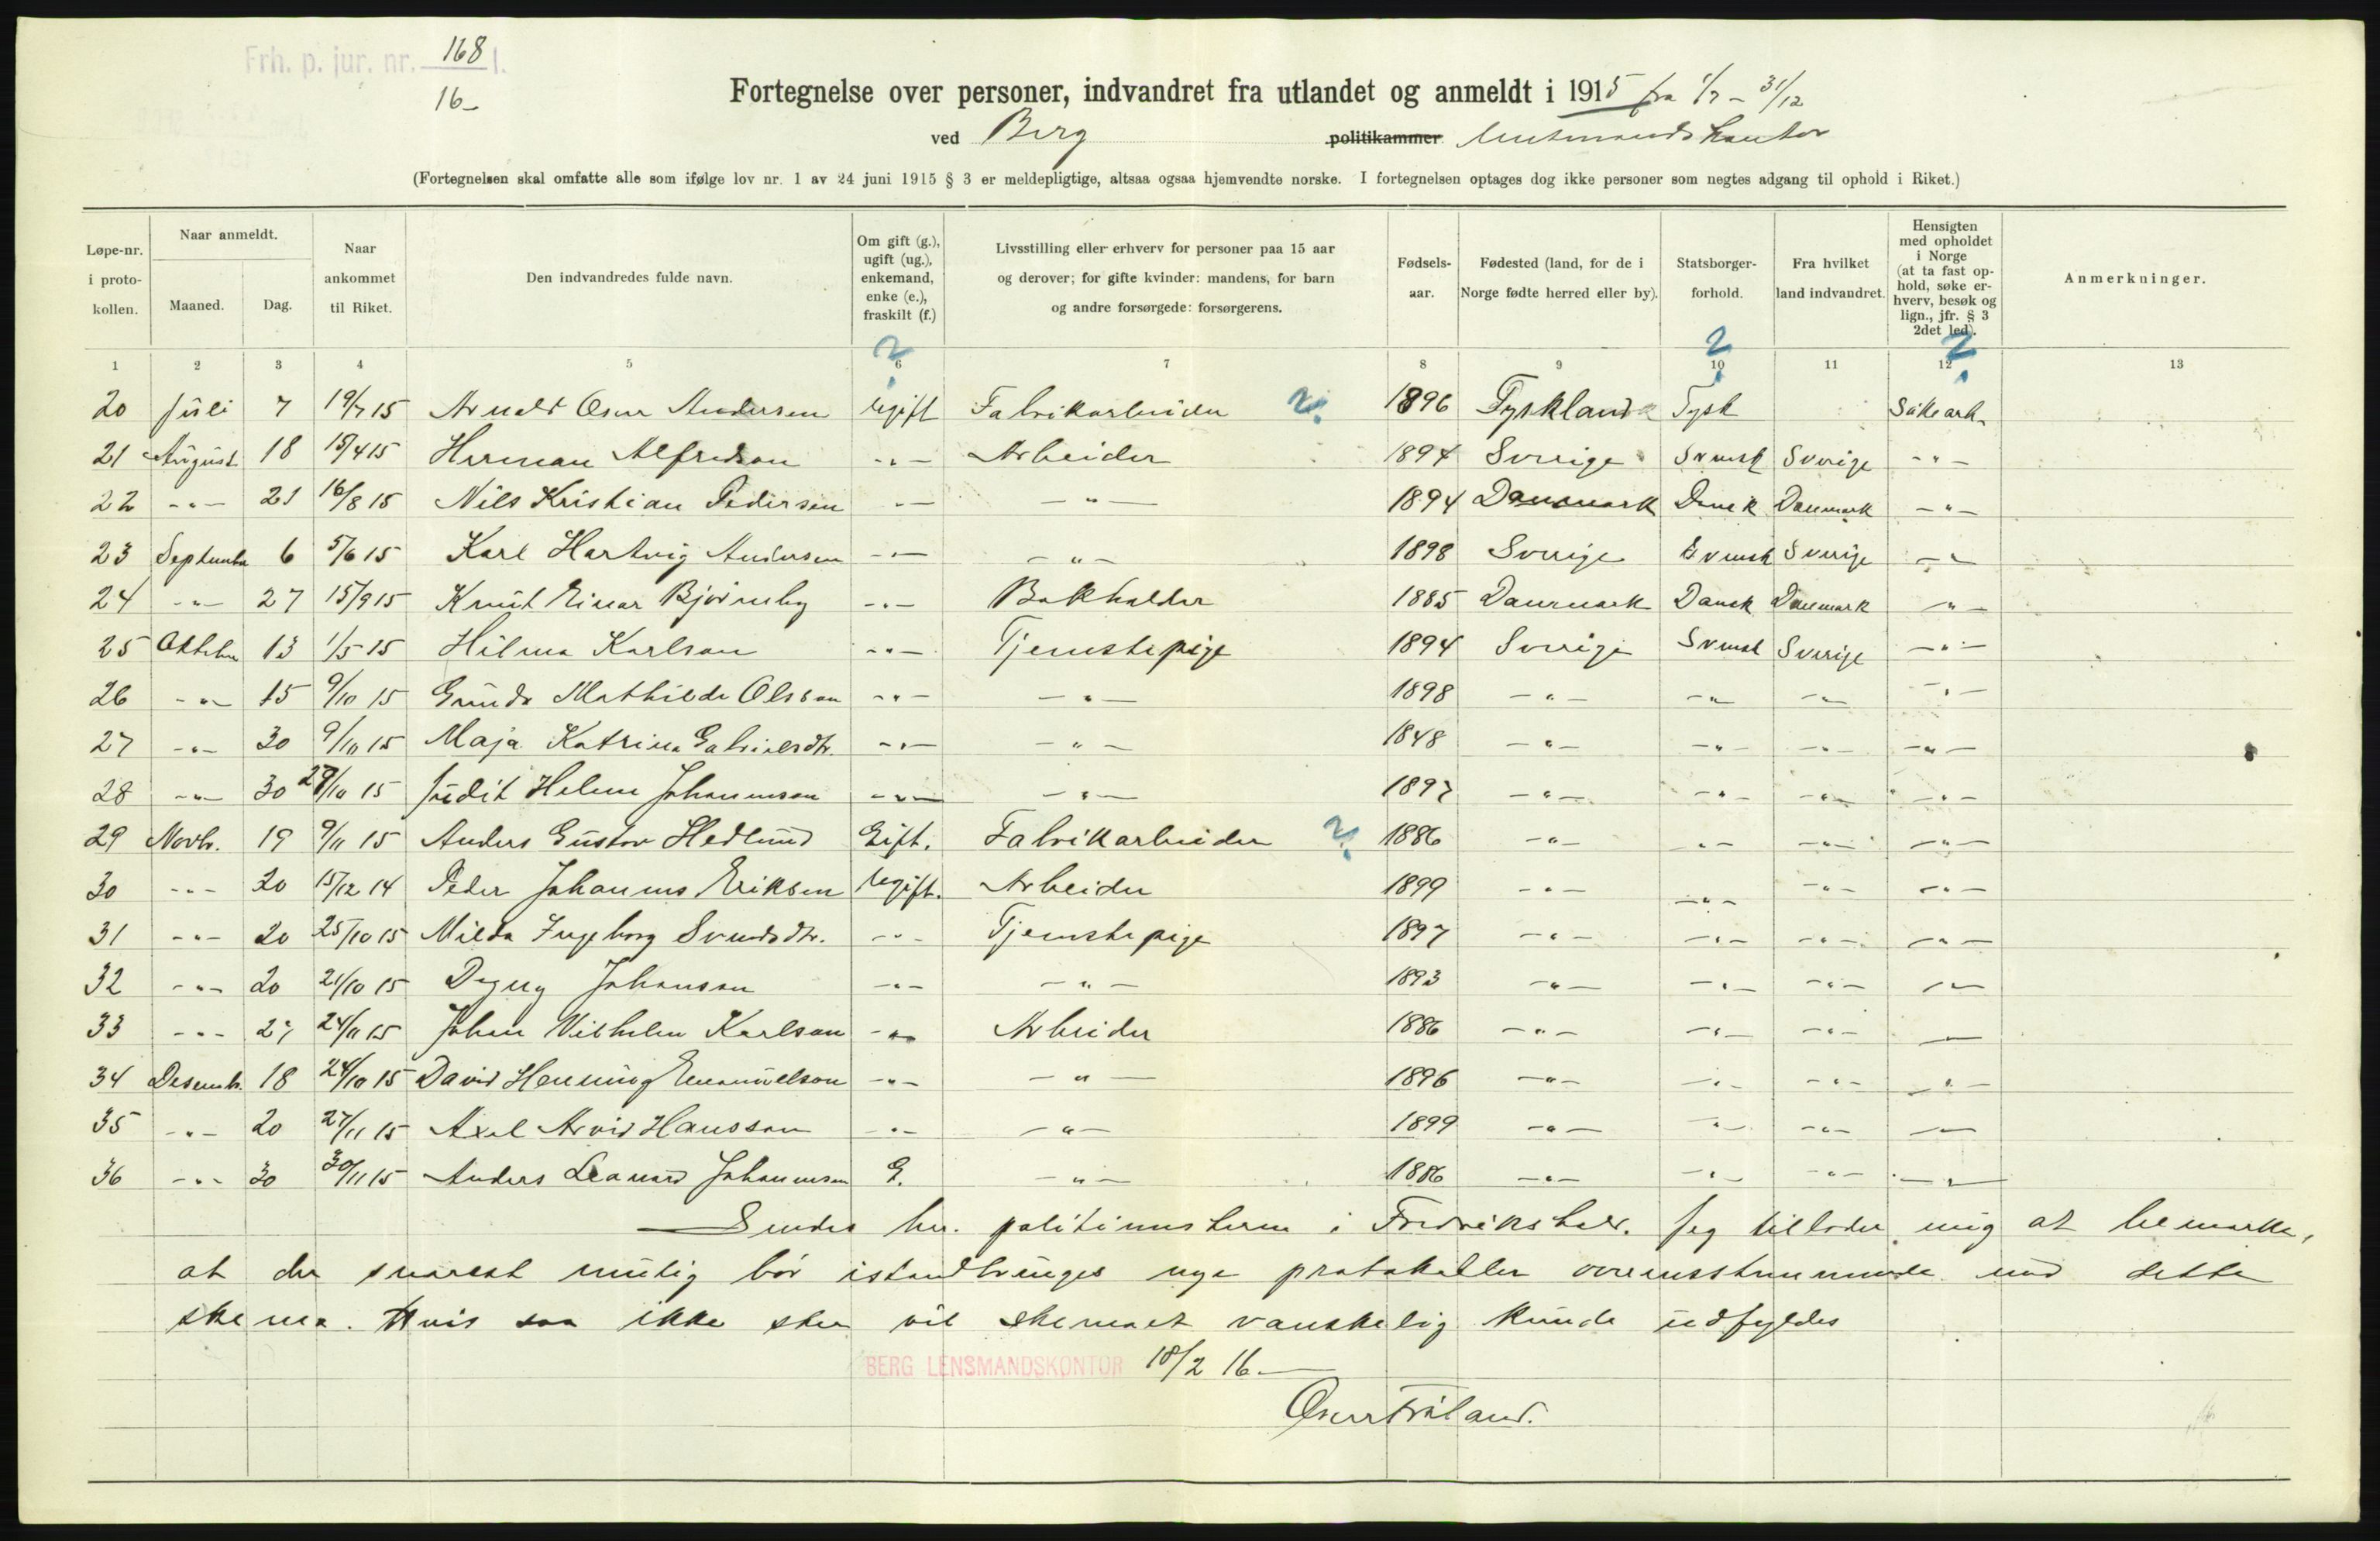 Frh. p. jur. nr. 168 1.
16-
Fortegnelse over personer, indvandret fra utlandet og anmeldt i 1915 fra 1/7 - 31/12
ved Berg politikammer
(Fortegnelsen skal omfatte alle som ifølge lov nr. 1 av 24 juni 1915 § 3 er meldepligtige, altsaa ogsaa hjemvendte norske. I fortegnelsen optages dog ikke personer som negtes adgang til ophold i Riket.)
Løpe-nr. i proto-kollen. Naar anmeldt. Maaned. Dag. Naar ankommet til Riket. Den indvandredes fulde navn. Om gift (g.), ugift (ug.), enkemand, enke (e.), fraskilt (f.) Livsstilling eller erhverv for personer paa 15 aar og derover; for gifte kvinder: mandens, for barn og andre forsørgede: forsørgerens. Fødsels-aar. Fødested (land, for de i Norge fødte herred eller by). Statsborger-forhold. Fra hvilket land indvandret. Hensigten med opholdet i Norge (at ta fast op-hold, søke er-hverv, besøk og lign., jfr. § 3 2det led). Anmerkninger.
1 2 3 4 5 6 7 8 9 10 11 12 13
20 Juli 7 19/7 15 Arnold Oscar Andersen Ugift Fabrikarbeider ? 1896 Tyskland Tysk Søke arb.
21 August 18 15/4 15 Herman Alfredson -"- Arbeider 1894 Sverige Svensk Sverige -"-
22 -"- 21 16/8 15 Nils Kristian Pedersen -"- -"- 1894 Danmark Dansk Danmark -"-
23 September 6 5/6 15 Karl Hartvig Andersen -"- -"- 1898 Sverige Svensk Sverige -"-
24 -"- 27 15/9 15 Knut Einar Bjørneby -"- Bokholder 1885 Danmark Dansk Danmark -"-
25 Oktober 13 1/5 15 Hilma Karlson -"- Tjenestepige 1894 Sverige Svensk Sverige -"-
26 -"- 15 9/10 15 Gunda Mathilde Olsson -"- -"- 1898 -"- -"- -"- -"-
27 -"- 30 9/10 15 Maja Katrina Gabrielsdtr. -"- -"- 1848 -"- -"- -"- -"-
28 -"- 30 29/10 15 Judit Helene Johannesson -"- -"- 1897 -"- -"- -"- -"-
29 Novbr. 19 9/11 15 Anders Gustav Hedlund Gift. Fabrikarbeider ? 1886 -"- -"- -"- -"-
30 -"- 20 15/12 14 Peder Johannes Eriksen Ugift. Arbeider 1899 -"- -"- -"- -"-
31 -"- 20 25/10 15 Milda Ingeborg Svendsdtr. -"- Tjenestepige 1897 -"- -"- -"- -"-
32 -"- 20 21/10 15 Dagny Johanson -"- -"- 1893 -"- -"- -"- -"-
33 -"- 27 24/11 15 Johan Vilhelm Karlson -"- Arbeider 1886 -"- -"- -"- -"-
34 Desembr. 18 24/10 15 David Henning Emanuelson -"- -"- 1896 -"- -"- -"- -"-
35 -"- 20 27/11 15 Axel Arvid Hansson -"- -"- 1899 -"- -"- -"- -"-
36 -"- 30 30/11 15 Anders Leonard Johannesson G. -"- 1886 -"- -"- -"- -"-
Sendes hr. politimesteren i Fredrikshald. Jeg tillader mig at bemærke,
at der snarest mulig bør istandbringes nye protokoller overensstemmende med dette
skema. Hvis saa ikke sker vil skemaet vanskelig kunde udfyldes
BERG LENSMANDSKONTOR 18/2 16.